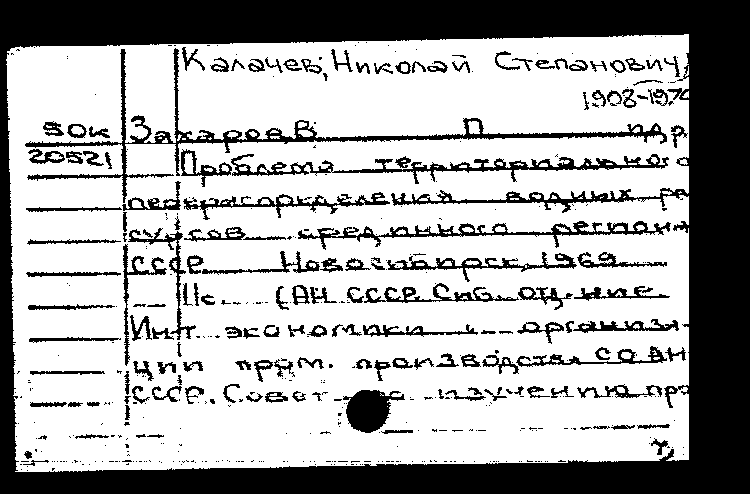 Калачев, Николай Степанович,
1908-1970
80к Захаров, В П и др
20521 Проблема территориального
перераспределения водных ре
сурсов срединного регион
СССР. Новосибирск, 1969.
11с. (АН СССР. Сиб. отд-ние.
Ин-т экономики и организа-
ции пром. производства СО АН
СССР. Совет по изучению про